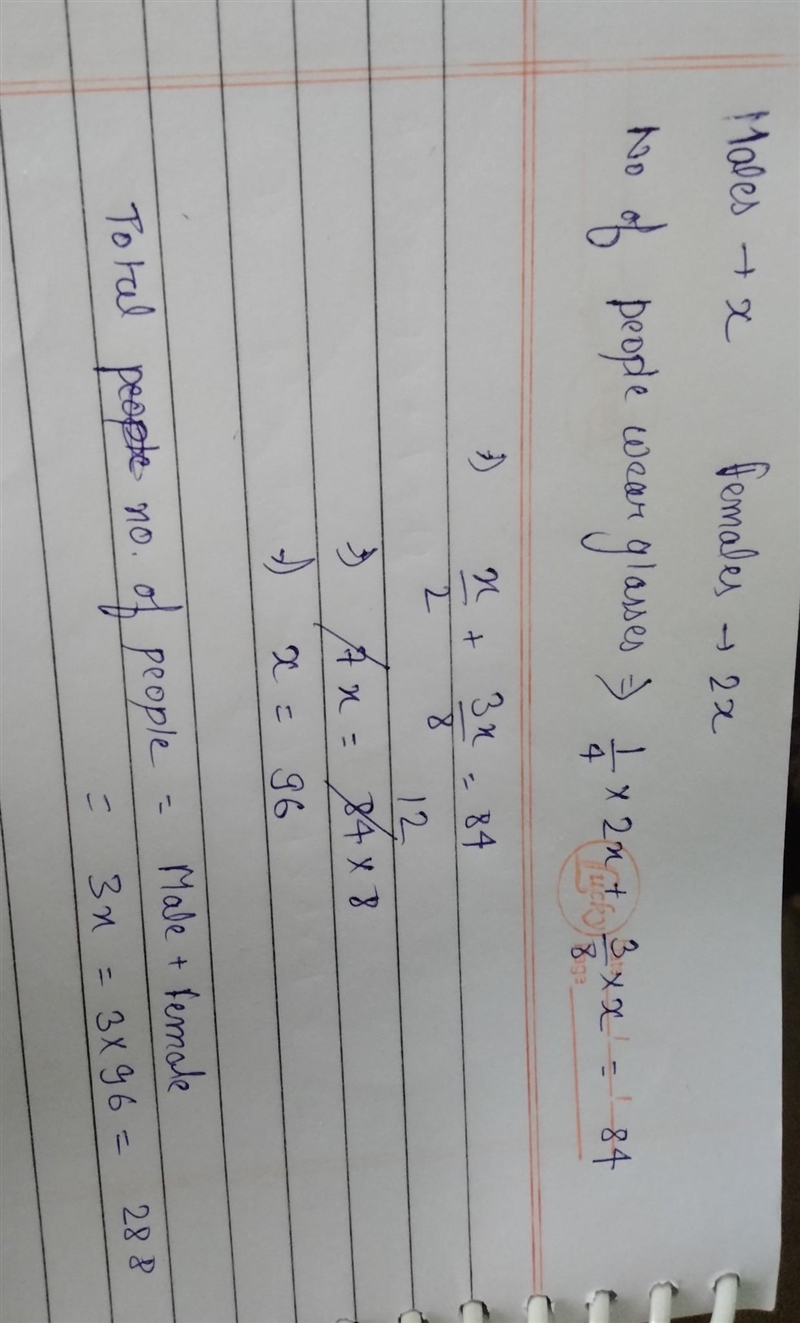 Males → x females → 2x
No of people wear glasses ⇒ 1/4 × 2x + 3/8 × x = 84
⇒ x/2 + 3x/8 = 84
12
⇒ 7x = 84 × 8
⇒ x = 96
Total people no. of people = Male + female
= 3x = 3 × 96 = 288
lucky